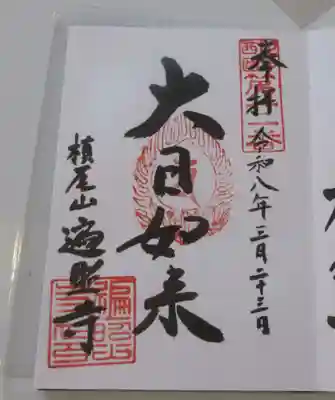 奉拝
令和八年三月二十三日
大日如来
槙尾山
遍照寺